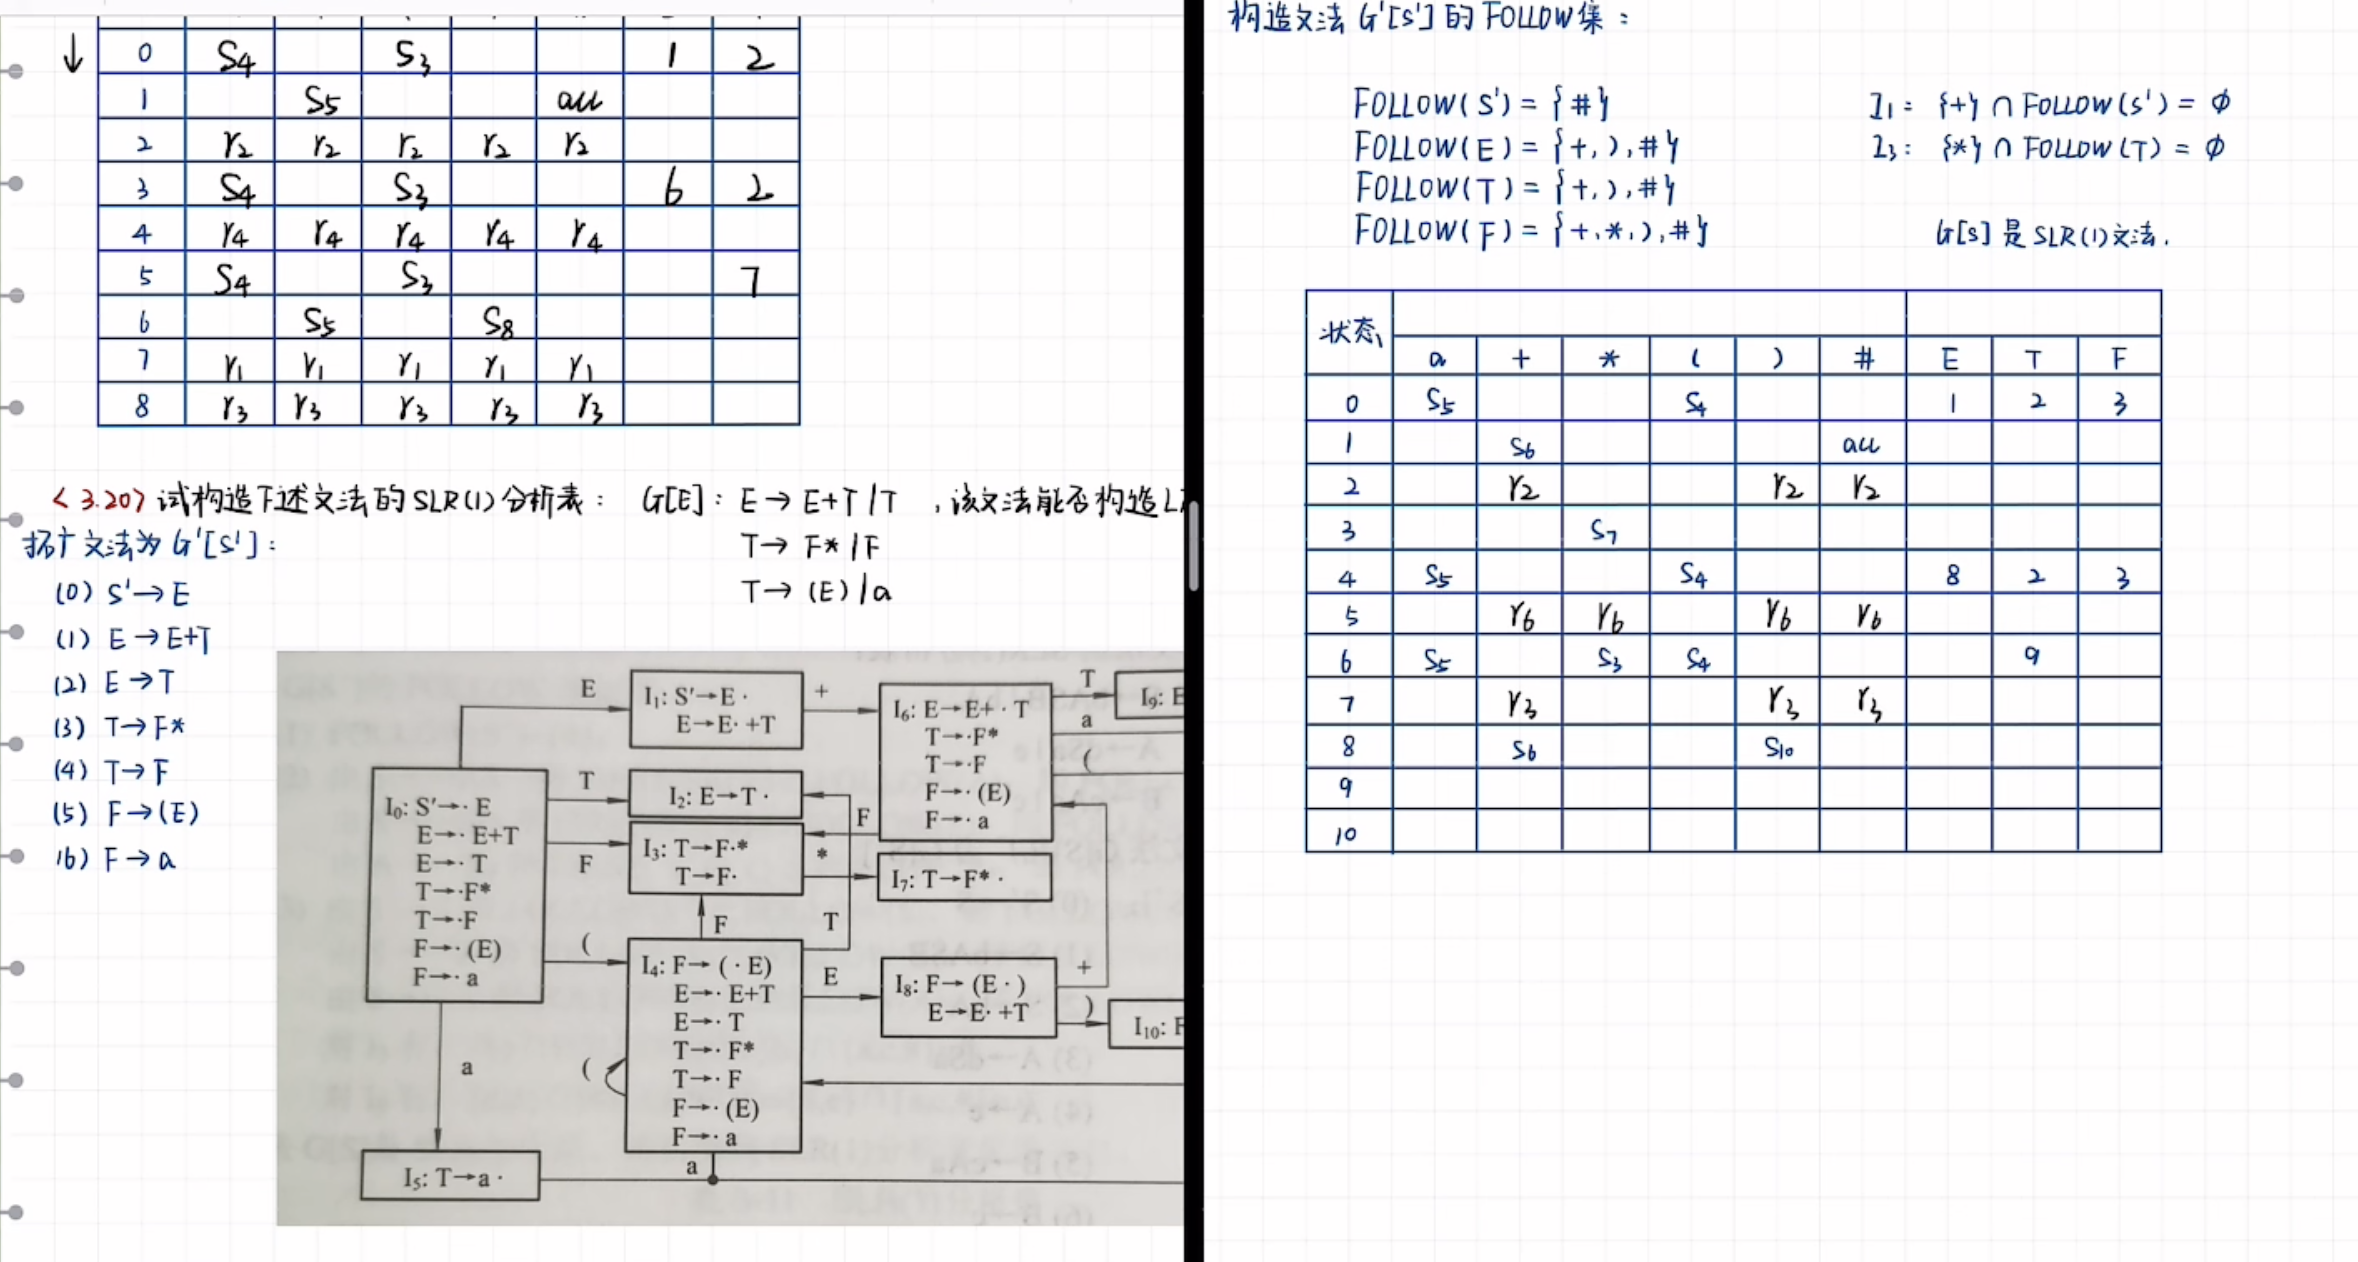 ↓ 0 S4 S3 1 2
1 S5 acc
2 r2 r2 r2 r2 r2
3 S4 S3 6 2
4 r4 r4 r4 r4 r4
5 S4 S3 7
6 S5 S8
7 r1 r1 r1 r1 r1
8 r3 r3 r3 r3 r3
<3.20> 试构造下述文法的SLR(1)分析表: G[E]: E→E+T/T ,该文法能否构造L
T→F*/F
T→(E)/a
拓广文法为G'[S']:
(0) S'→E
(1) E→E+T
(2) E→T
(3) T→F*
(4) T→F
(5) F→(E)
(6) F→a
I0: S'→·E
E→·E+T
E→·T
T→·F*
T→·F
F→·(E)
F→·a
E
T
F
(
a
I1: S'→E·
E→E·+T
+
I2: E→T·
I3: T→F·*
T→F·
*
F
F
T
I4: F→(·E)
E→·E+T
E→·T
T→·F*
T→·F
F→·(E)
F→·a
(
E
a
I5: T→a·
I6: E→E+·T
T→·F*
T→·F
F→·(E)
F→·a
T
a
(
I9: E
I7: T→F*·
I8: F→(E·)
E→E·+T
+
)
I10: F
构造文法G'[S']的FOLLOW集:
FOLLOW(S')={#} I1: {+}∩FOLLOW(S')=φ
FOLLOW(E)={+,),#} I3: {*}∩FOLLOW(T)=φ
FOLLOW(T)={+,),#}
FOLLOW(F)={+,*,),#} G[S]是SLR(1)文法.
状态
a + * ( ) # E T F
0 S5 S4 1 2 3
1 S6 acc
2 r2 r2 r2
3 S7
4 S5 S4 8 2 3
5 r6 r6 r6 r6
6 S5 S3 S4 9
7 r3 r3 r3
8 S6 S10
9
10